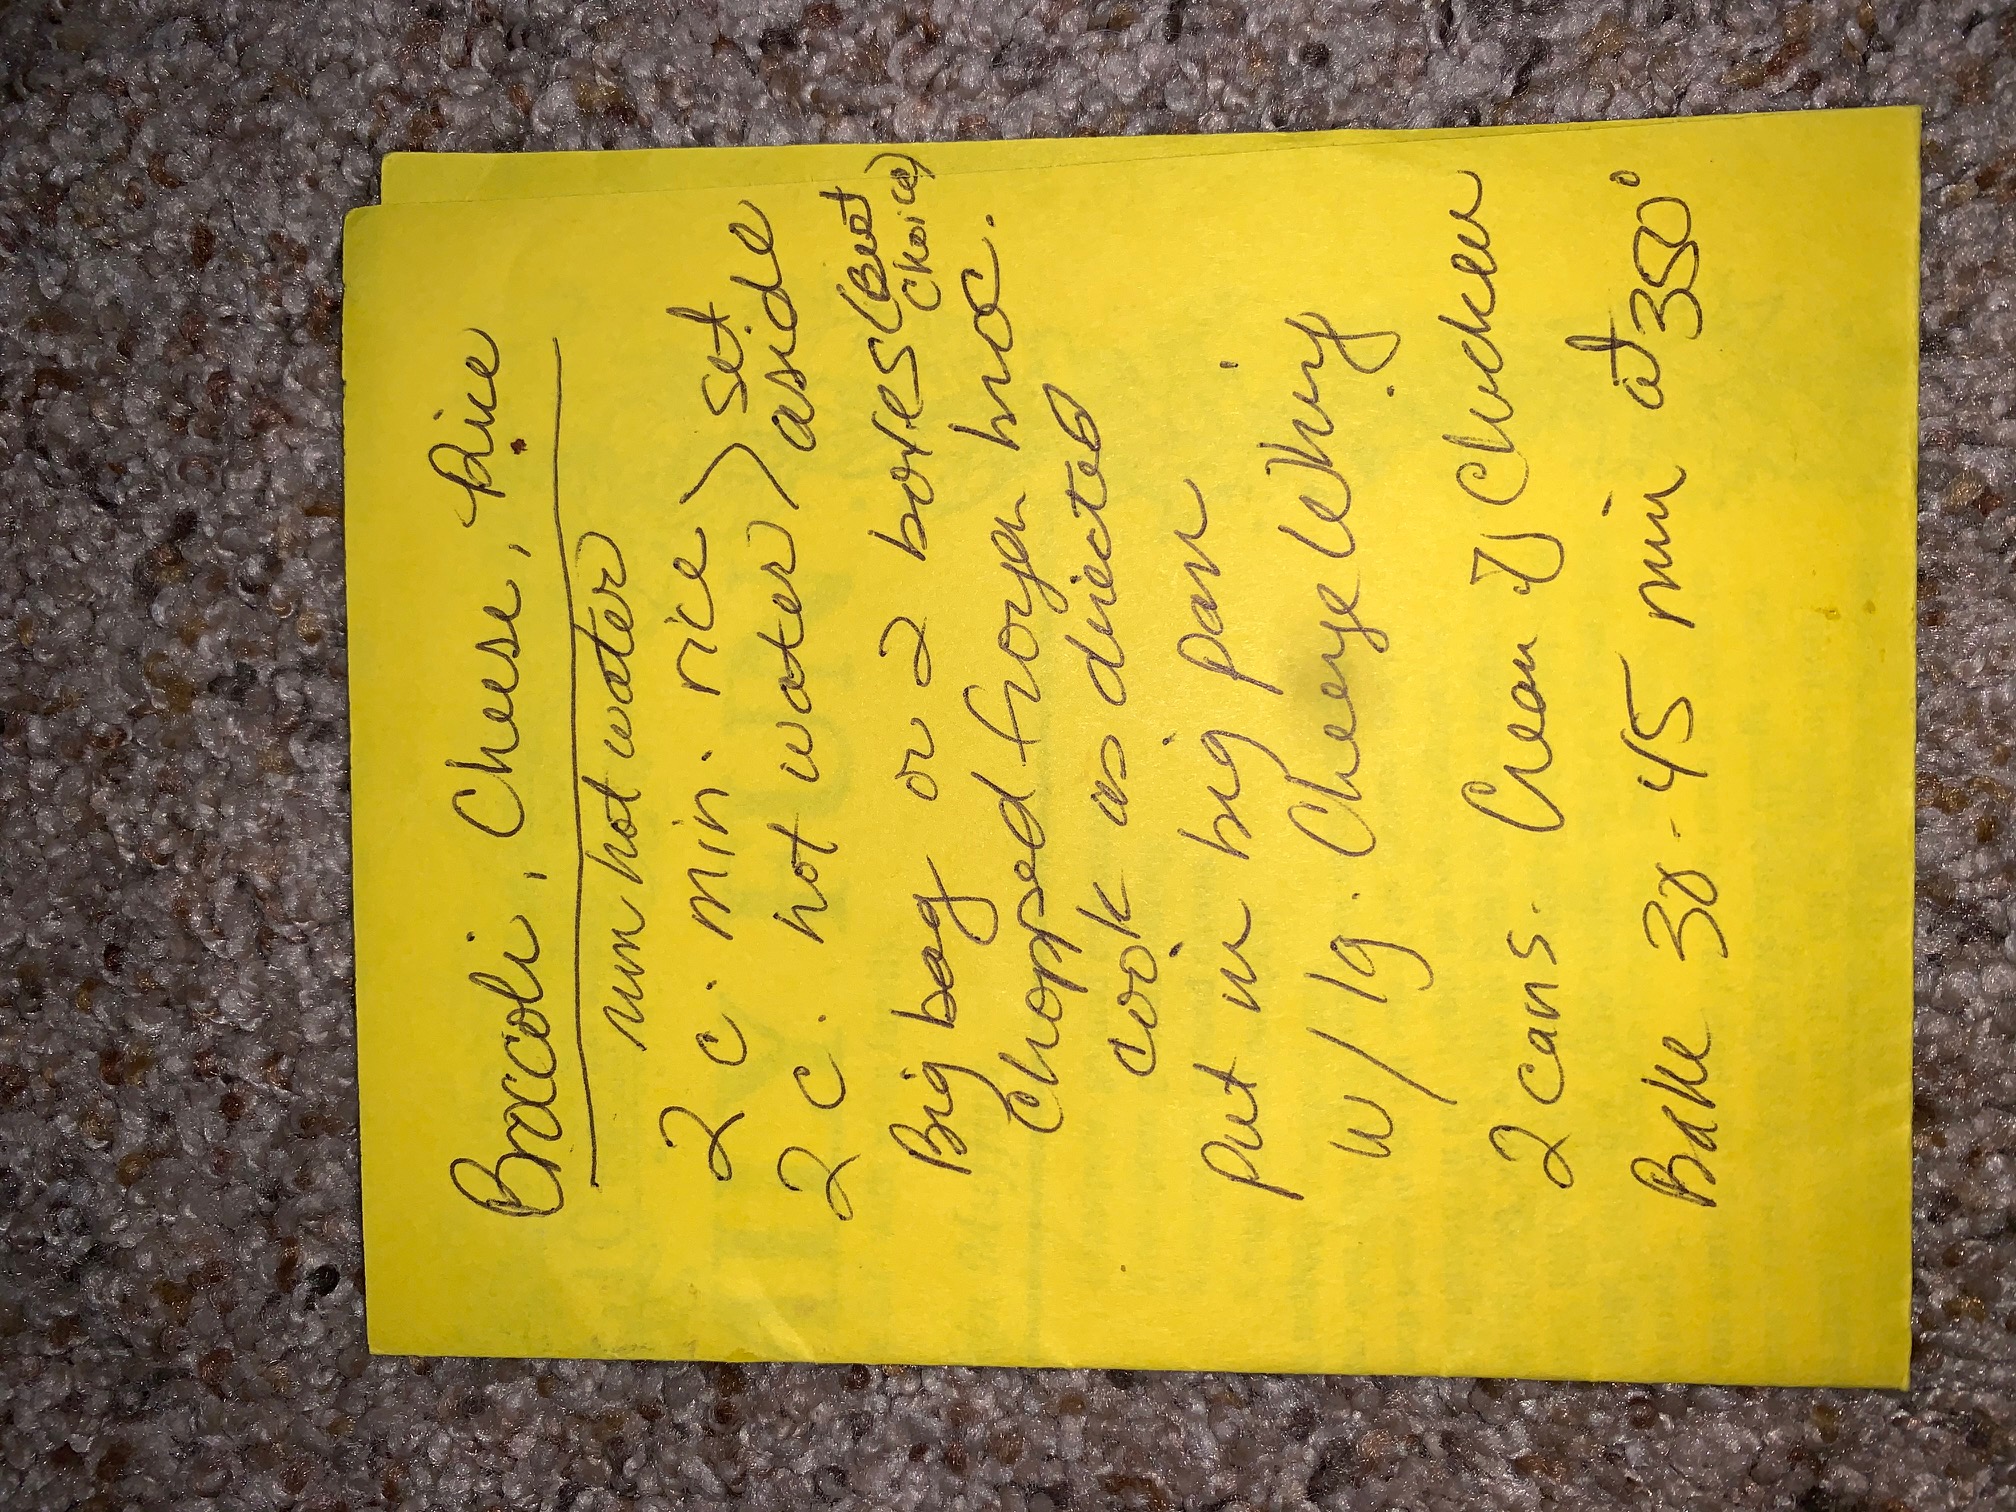 Broccoli, Cheese, Rice
run hot water
2 c. min. rice
2 c. hot water > set aside
Big bag or 2 boxes (Best Choice)
Chopped frozen broc.
cook as directed
Put in big pan
w/ lg. Cheeze Whiz
2 cans. Cream of Chicken
Bake 30-45 min at 350°